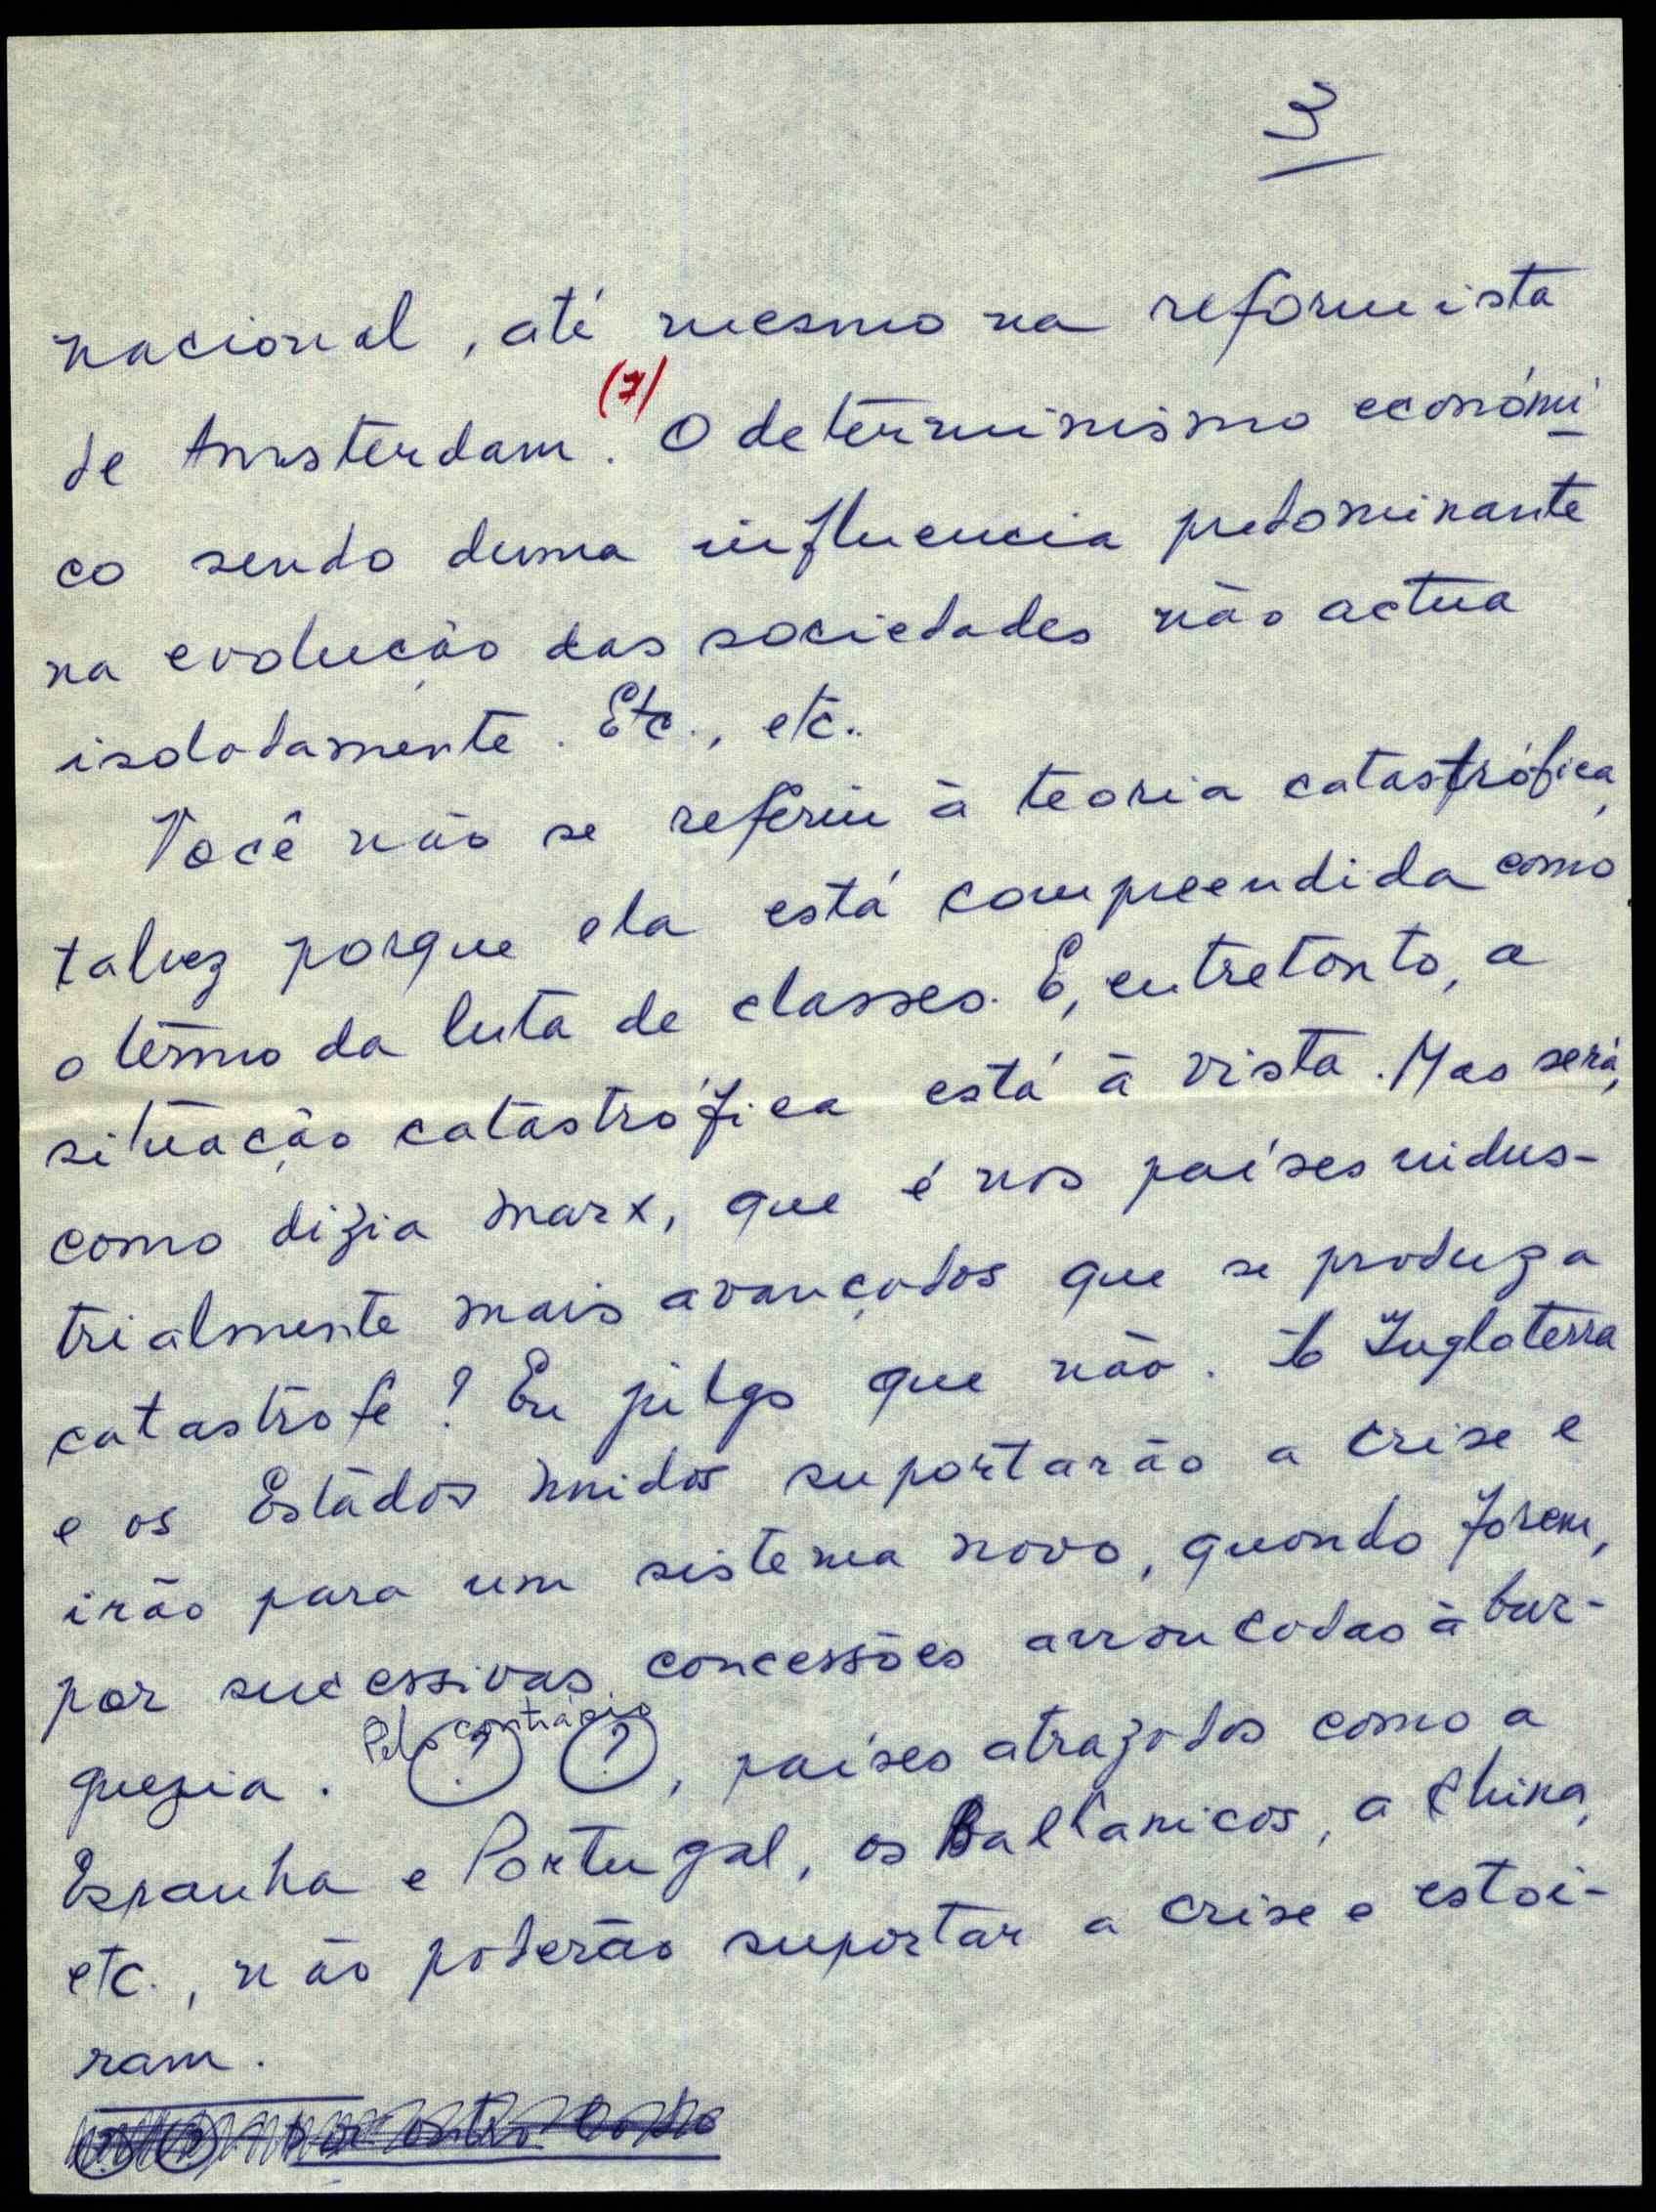 3
nacional, até mesmo na reformista
de Amsterdam. (7) O determinismo económi
co sendo duma influencia predominante
na evolução das sociedades não actua
isoladamente. Etc., etc..
Você não se referiu à teoria catastrófica,
talvez porque ela está compreendida como
o têrmo da luta de classes. E, entretanto, a
situação catastrófica está à vista. Mas será,
como dizia Marx, que é nos países indus-
trialmente mais avançados que se produza
catastrofe? Eu julgo que não. A Inglaterra
e os Estados Unidos suportarão a crise e
irão para um sistema novo, quando forem,
por sucessivas concessões arrancadas à bur-
Pelo contrário
guezia. (?) (?), países atrazados como a
Espanha e Portugal, os Balkanicos, a China,
etc., não poderão suportar a crise e estoi-
ram.